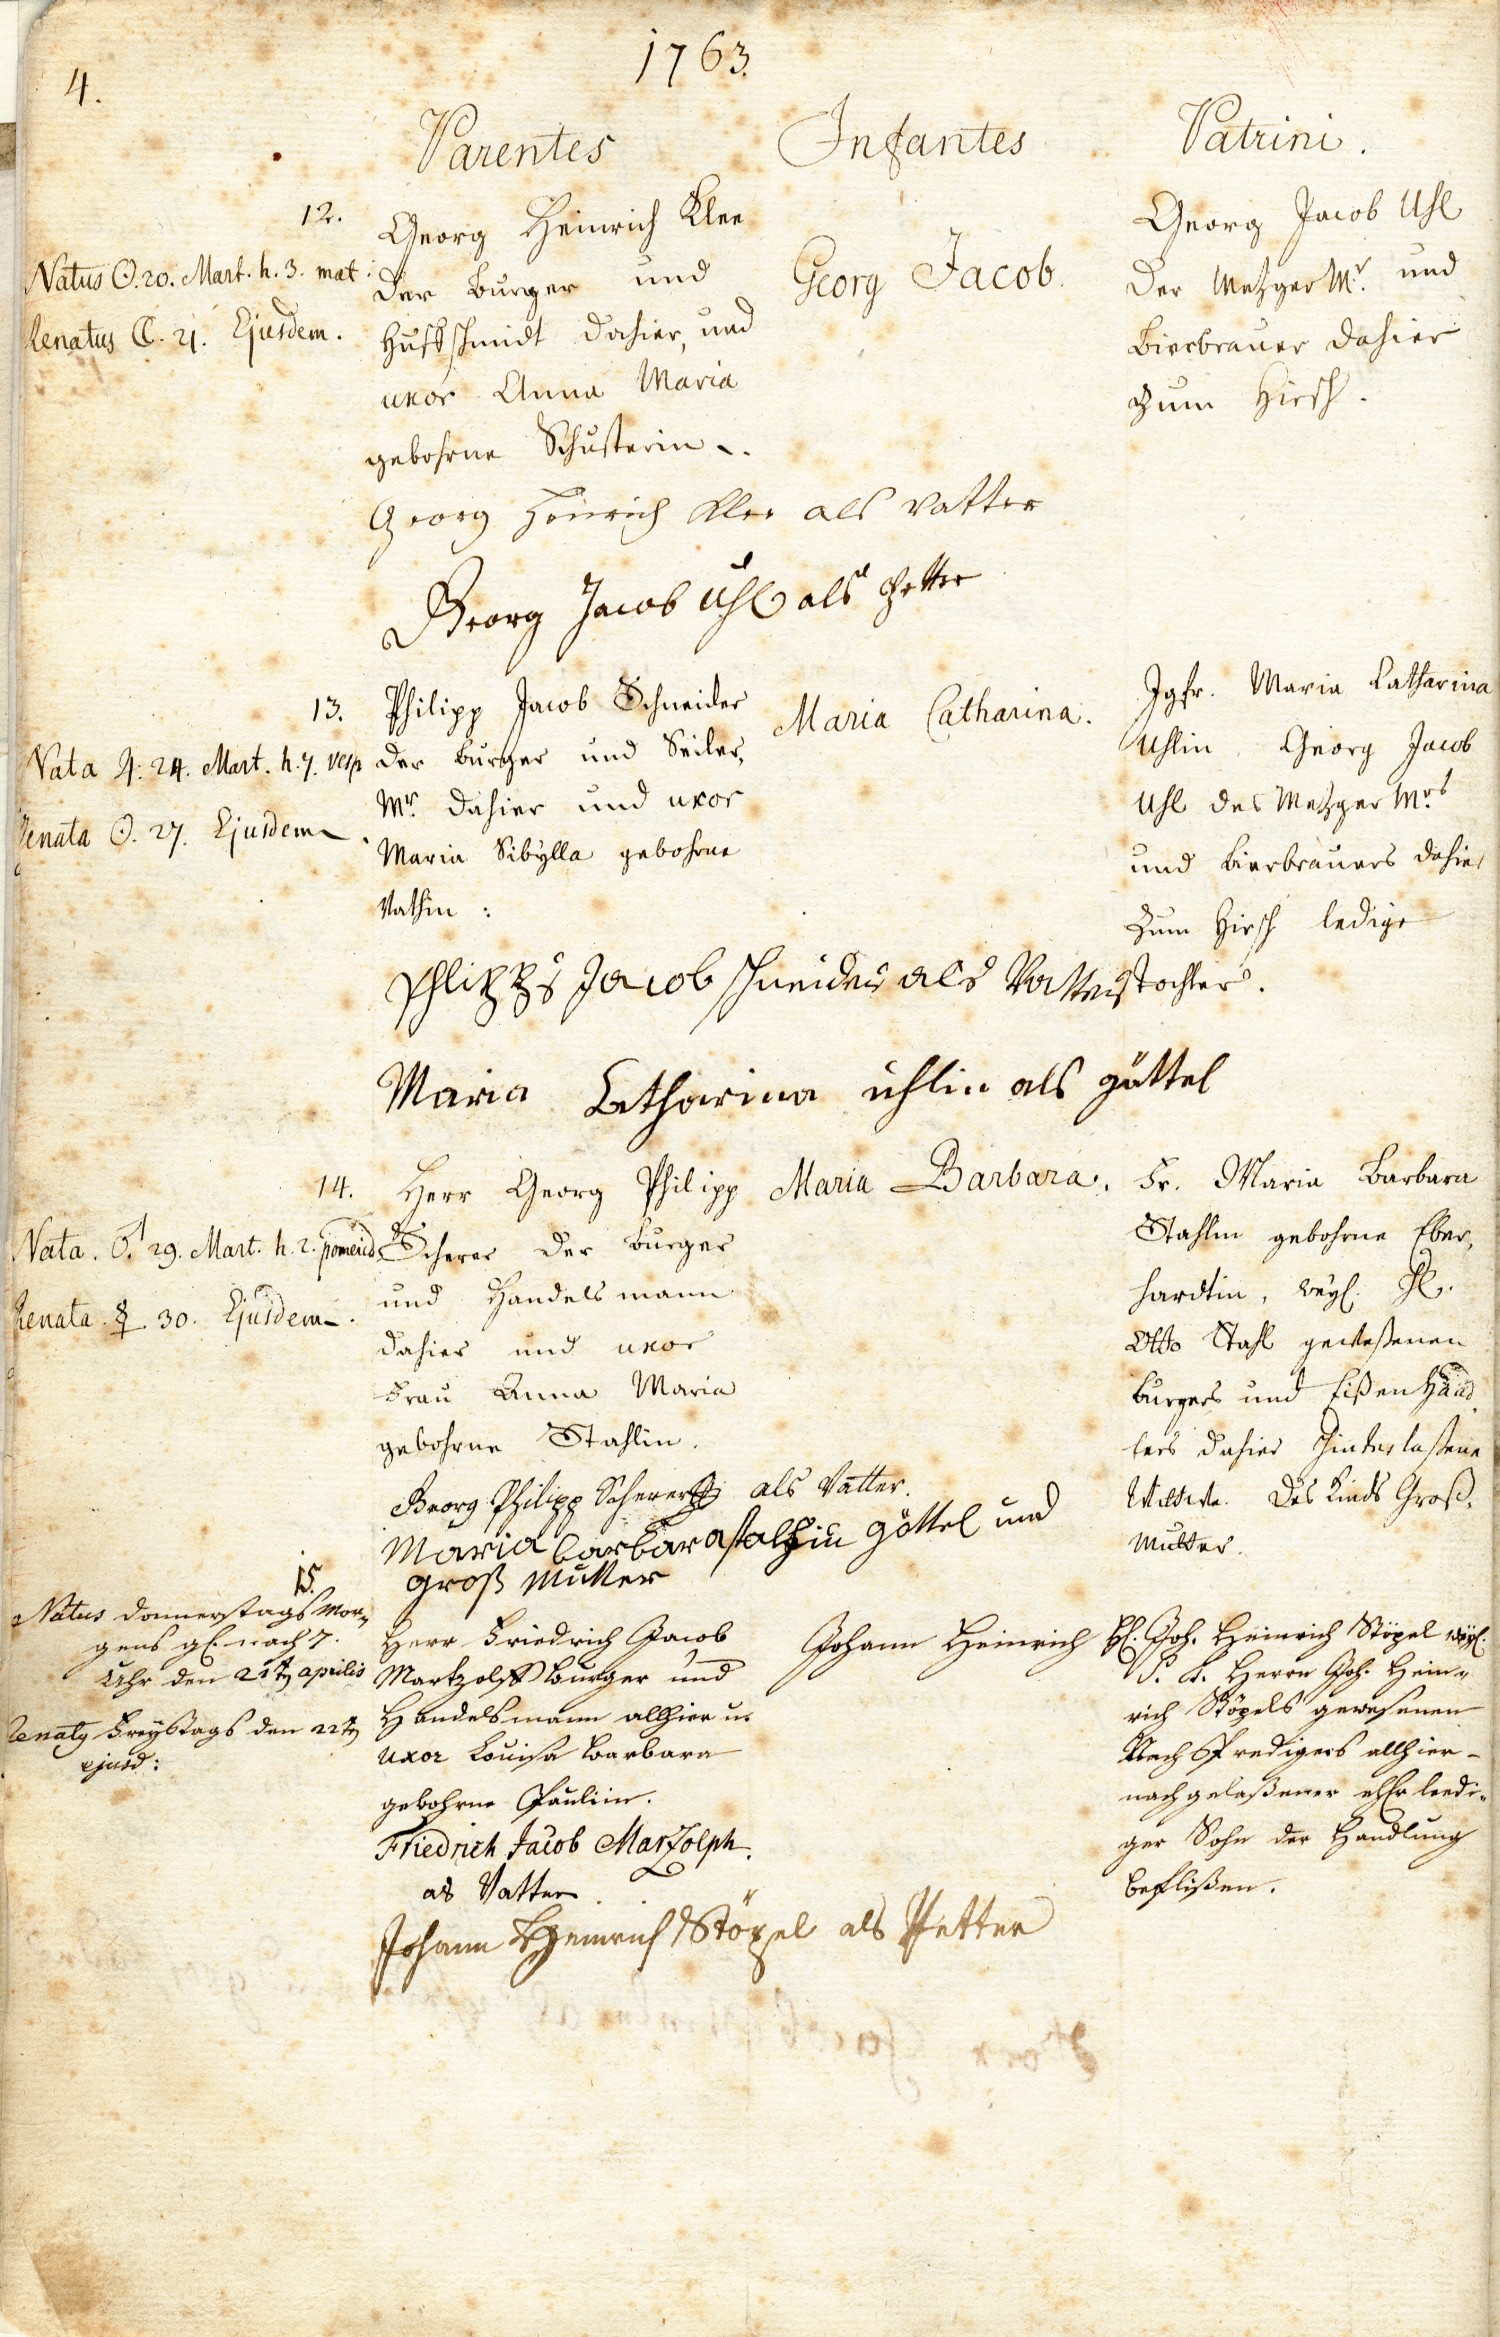 4.
1763.
Parentes
Infantes
Patrini.
12.
Natus ☉. 20. Mart. h. 3. mat.
Renatus ☾. 21. Ejusdem.
Georg Heinrich Klee
der Burger und
Huffschmidt dahier, und
uxor Anna Maria
gebohrne Schusterin.
Georg Jacob.
Georg Jacob Uhl
der Metzger Mr. und
Bierbrauer dahier
zum Hirsch.
Georg Heinrich Klee als vatter
Georg Jacob Uhl als Petter
13.
Nata ♃. 24. Mart. h. 7. vesp
Renata ☉. 27. Ejusdem
Philipp Jacob Schneider
der Burger und Seiler,
Mr. dahier und uxor
Maria Sibylla gebohrne
Maria Catharina.
Jgfr. Maria Catharina
Uhlin Georg Jacob
Uhl des Metzger Mrs
und Bierbrauers dahier
zum Hirsch ledige
tochter.
Jacob schneider als Vatter
Maria Catharina uhlin als göttel
14.
Nata. ♂. 29. Mart. h. 2. pomerid
Renata. ☿ 30. Ejusdem.
Herr Georg Philipp
Scherer der Burger
und Handelsmann
dahier und uxor
Frau Anna Maria
gebohrne Stahlin.
Maria Barbara.
Fr. Maria Barbara
Stahlin gebohrne Eber,
hardtin, weyl. H.
Otto Stahl geweßenen
Burgers und Eißenhänd,
lers dahier hinterlaßene
Wittwe. Des Kinds Groß,
mutter.
Georg Philipp Scherer als Vatter.
Maria barbara stalhin göttel und
groß Mutter
15.
Natus donnerstags Mor,,
gens gl. nach 7.
Uhr den 21t aprilis
Renatg Freystags den 22t
ejusd:
Herr Friedrich Jacob
Martzolff Burger und
Handelsmann allhier u.
uxor Louisa Barbara
gebohrne Paulin.
Johann Heinrich
H. Joh. Heinrich Stöpel weyl.
Herrn Joh. Hein,,
rich Stöpels gewesenen
Nach Predigers allhier
nachgelaßener leedi,,
ger Sohn der Handlung
beflißen.
Friedrich Jacob Marzolph.
als Vatter.
Johann Heinrich Stöpel als Petter